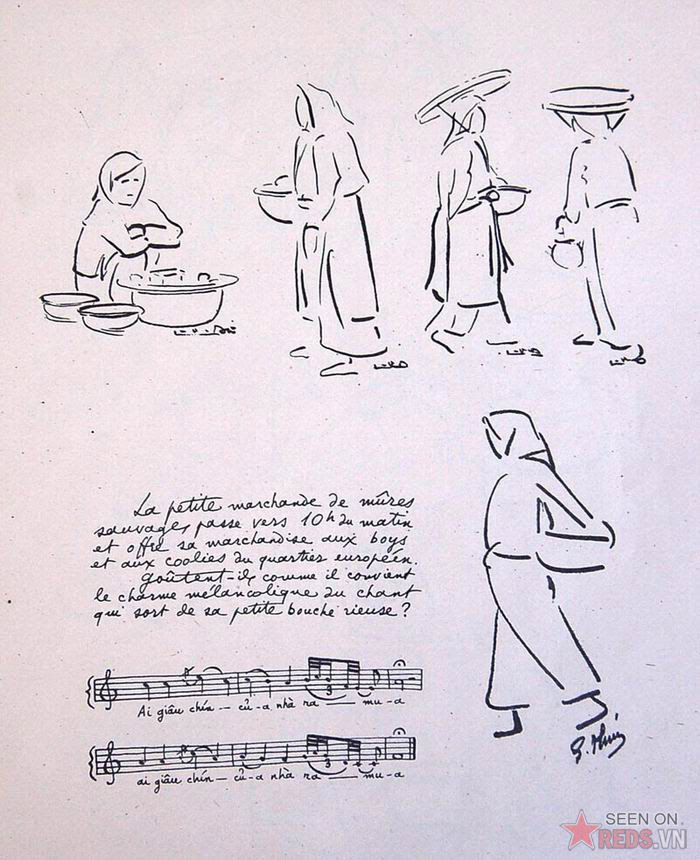 La petite marchande de mûres
sauvages passe vers 10h du matin
et offre sa marchandise aux boys
et aux coolies du quartier européen.
Goûtent-ils comme il convient
le charme mélancolique du chant
qui sort de sa petite bouche rieuse ?
3
Ai giâu chín — củ-a nhà ra — mu-a
3
ai giâu chín — củ-a nhà ra — mu-a
SEEN ON
REDS.VN